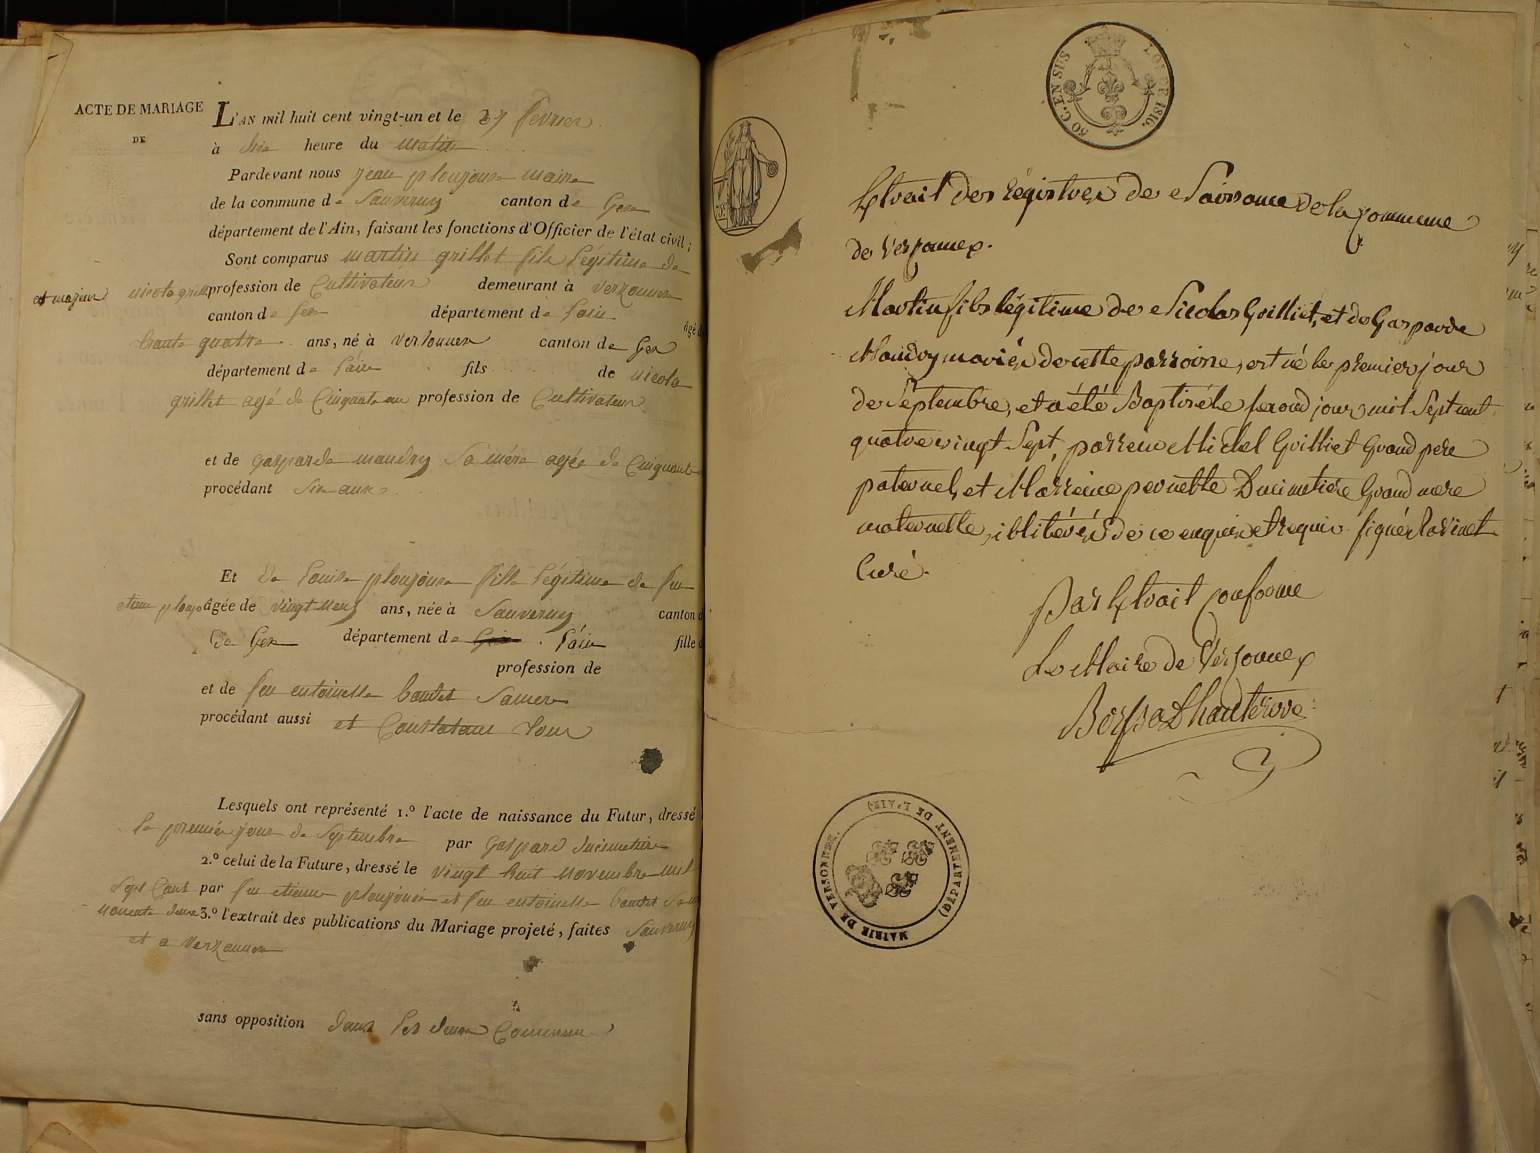 ACTE DE MARIAGE
DE
L'AN mil huit cent vingt-un et le 27 fevrier
à dix heure du matin
Pardevant nous jean ploujoux maire
de la commune de Sauverny canton de Gex
département de l'Ain, faisant les fonctions d'Officier de l'état civil;
Sont comparus martin grillet fils Légitime de
et majeur nicola grillet profession de Cultivateur demeurant à verzonnex
canton de Gex département de l'ain âgé d
trante quatre ans, né à versonnex canton de Gex
département de l'ain fils de nicola
grillet agé de Cinquate profession de Cultivateur
et de gasparde maudry Sa mère agée de Cinquante
procédant Six ans
Et de Louise ploujoux fille Légitime de feu
etiene agée de vingt neuf ans, née à Sauverny canton d
de Gex département de l'ain fille d
profession de
et de feu entoinette baudet Samere
procédant aussi et
Lesquels ont représenté 1.º l'acte de naissance du Futur, dressé
le premier jour de Septembre par Gaspard ducimetiere
2.º celui de la Future, dressé le vingt huit novembre mil
Sept Cent par feu etiene ploujoux et feu entoinette baudet
nonente deux 3.º l'extrait des publications du Mariage projeté, faites Sauverny
et a verzonnex
sans opposition dans les deux Commune
50 C. EN SUS
LOI DE 1816.
Extrait des régistres de Naissance de la Commune
de Versonnex.
Martin fils légitime de Nicolas Grilliet, et de Gasparde
Maudry mariés de cette parroisse, est né le premier jour
de Septembre, et a été Baptisé le second jour mil Sept cent
quatre vingt Sept, parrein Michel Grilliet Grand pere
paternel, et Marreine pernette Ducimetiere Grand mere
maternelle, illitérés de ce enquis et requis signés
Curé.
Par Extrait conforme
Le Maire de Versonnex
MAIRIE DE VERSONNEX.
(DÉPARTEMENT DE L'AIN)